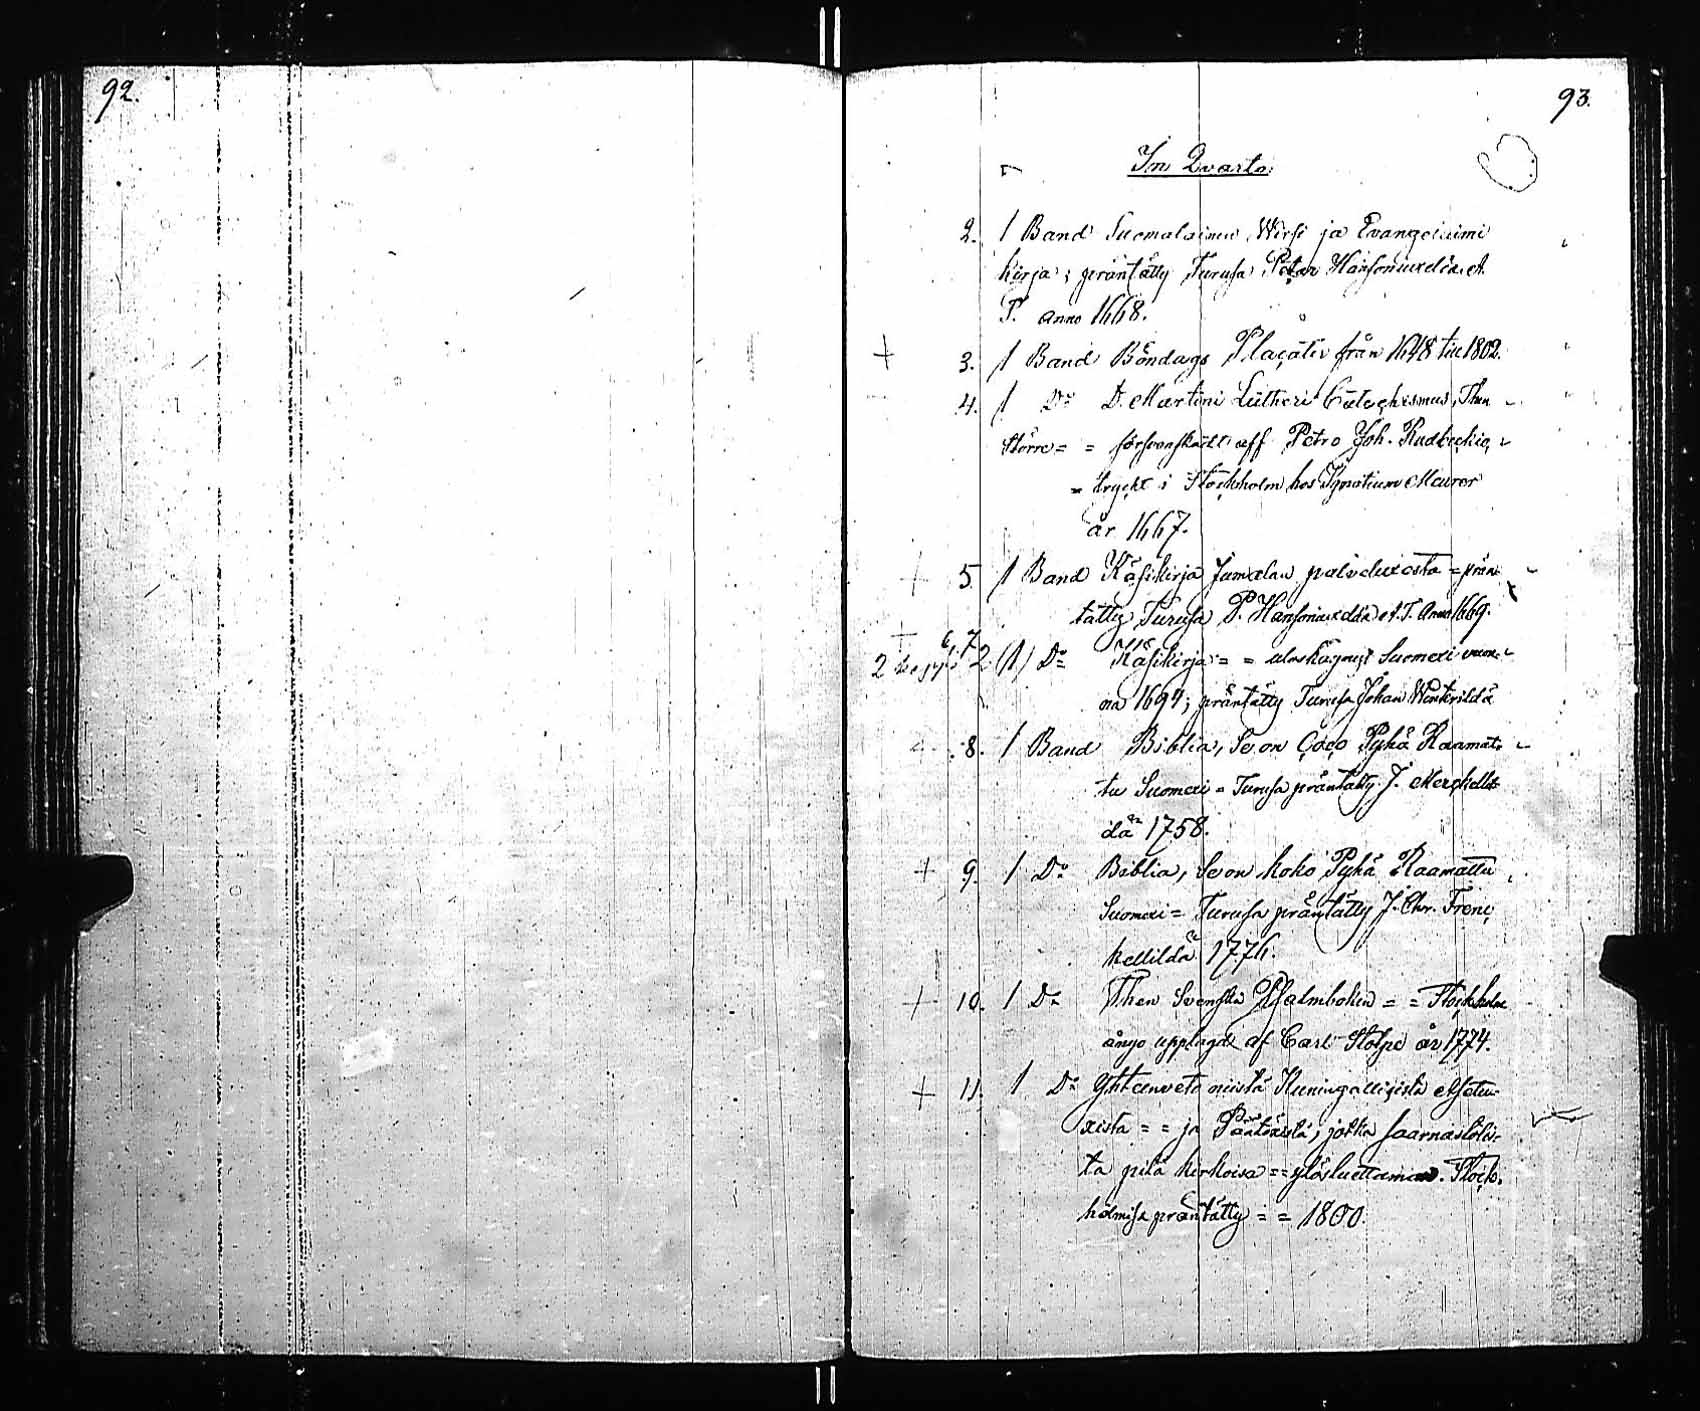 92.
93.
In Quarto.
2. 1 Band Suomalainen Wirsi ja Evangeliumi
kirja; präntätty Turusa Petar Hansoniuxelda A.
P. anno 1668.
3. 1 Band Böndags Placater från 1648 till 1802.
4. 1 Do D. Martini Lutheri Catechismus, Then
Större = = försvenskatt aff Petro Joh. Rudbeckio,
= tryckt i Stockholm hos Ignatium Meurer
år 1667.
5 1 Band Käsikirja Jumalan palveluxesta = prän
tätty Turusa P. Hansoniuxelda A. T. Anno 1669.
6. 7
2 2 (1) Do Käsikirja = = uloskäynyt Suomexi vuon-
na 1694; präntätty Turusa Johan Winterildä
8. 1 Band Biblia, Se on Coco Pyhä Raamat-
tu Suomexi = Turusa präntätty J. Merckellil-
dä 1758.
9. 1 Do Biblia, Se on koko Pyhä Raamattu
Suomexi = Turusa präntätty J. Chr. Frenc
kellildä 1776.
10. 1 Do Then Svenska Psalmboken = = Stockholm
ånyo upplagd af Carl Stolpe år 1774.
11. 1 Do Yhteenveto niistä Kuningallisista Asetu-
xista = = ja Päätöxistä, jotka saarnastolis-
ta pitä kirkoisa == ylösluettaman. Stock-
holmisa präntätty = = 1800.